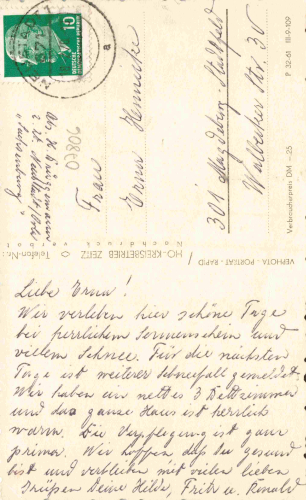 Liebe Erna!
Wir verleben hier schöne Tage
bei herrlichem Sonnenschein und
vielem Schnee. Für die nächsten
Tage ist weiterer Schneefall gemeldet.
Wir haben ein nettes 3 Bettzimmer
und das ganze Haus ist herrlich
warm. Die Verpflegung ist ganz
prima. Wir hoffen daß du gesund
bist und verbleiben mit vielen lieben
Grüßen Deine Hilde, Fritz u. Renate
Abs. H.
z. Zt.
07806
Frau
Erna
301 Magdeburg-
Walbecker Str. 30
10
DEUTSCHE
a
HO-KREISBETRIEB ZEITZ O Telefon-Nr.:
Nachdruck verboten
VEPHOTA · PORTRÄT · RAPID /
Verbraucherpreis DM -.25
P 32-61 III-9-109